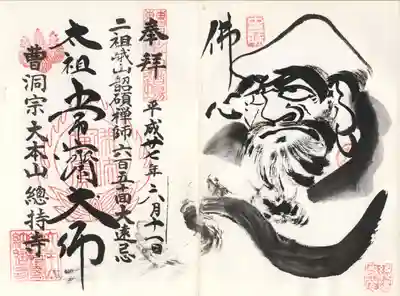 奉拝
平成廿七年六月十一日
二祖峨山韶碩禅師六百五十回大遠忌
太祖常濟大師
曹洞宗大本山總持寺
佛心